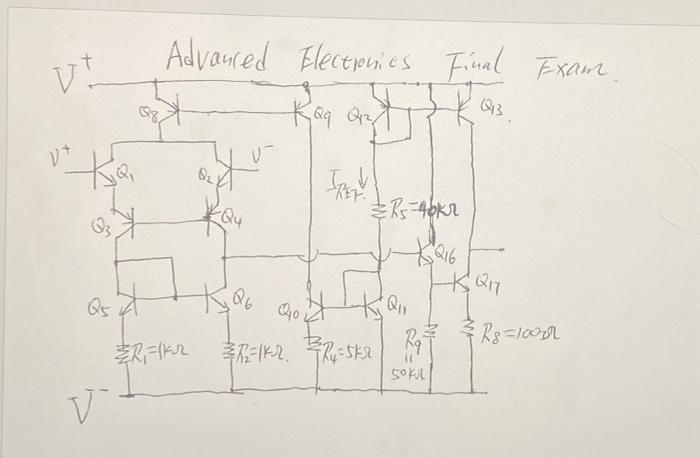 Advanced Electronics Final Exam.
V+
Q8
Q9
Q12
Q13.
V+
Q1
Q2
V-
IREF.
R5=40kΩ
Q3
Q4
Q16
Q17
Q5
Q6
Q10
Q11
R1=1kΩ
R2=1kΩ.
R4=5kΩ
R9
=
50kΩ
R8=100Ω
V-